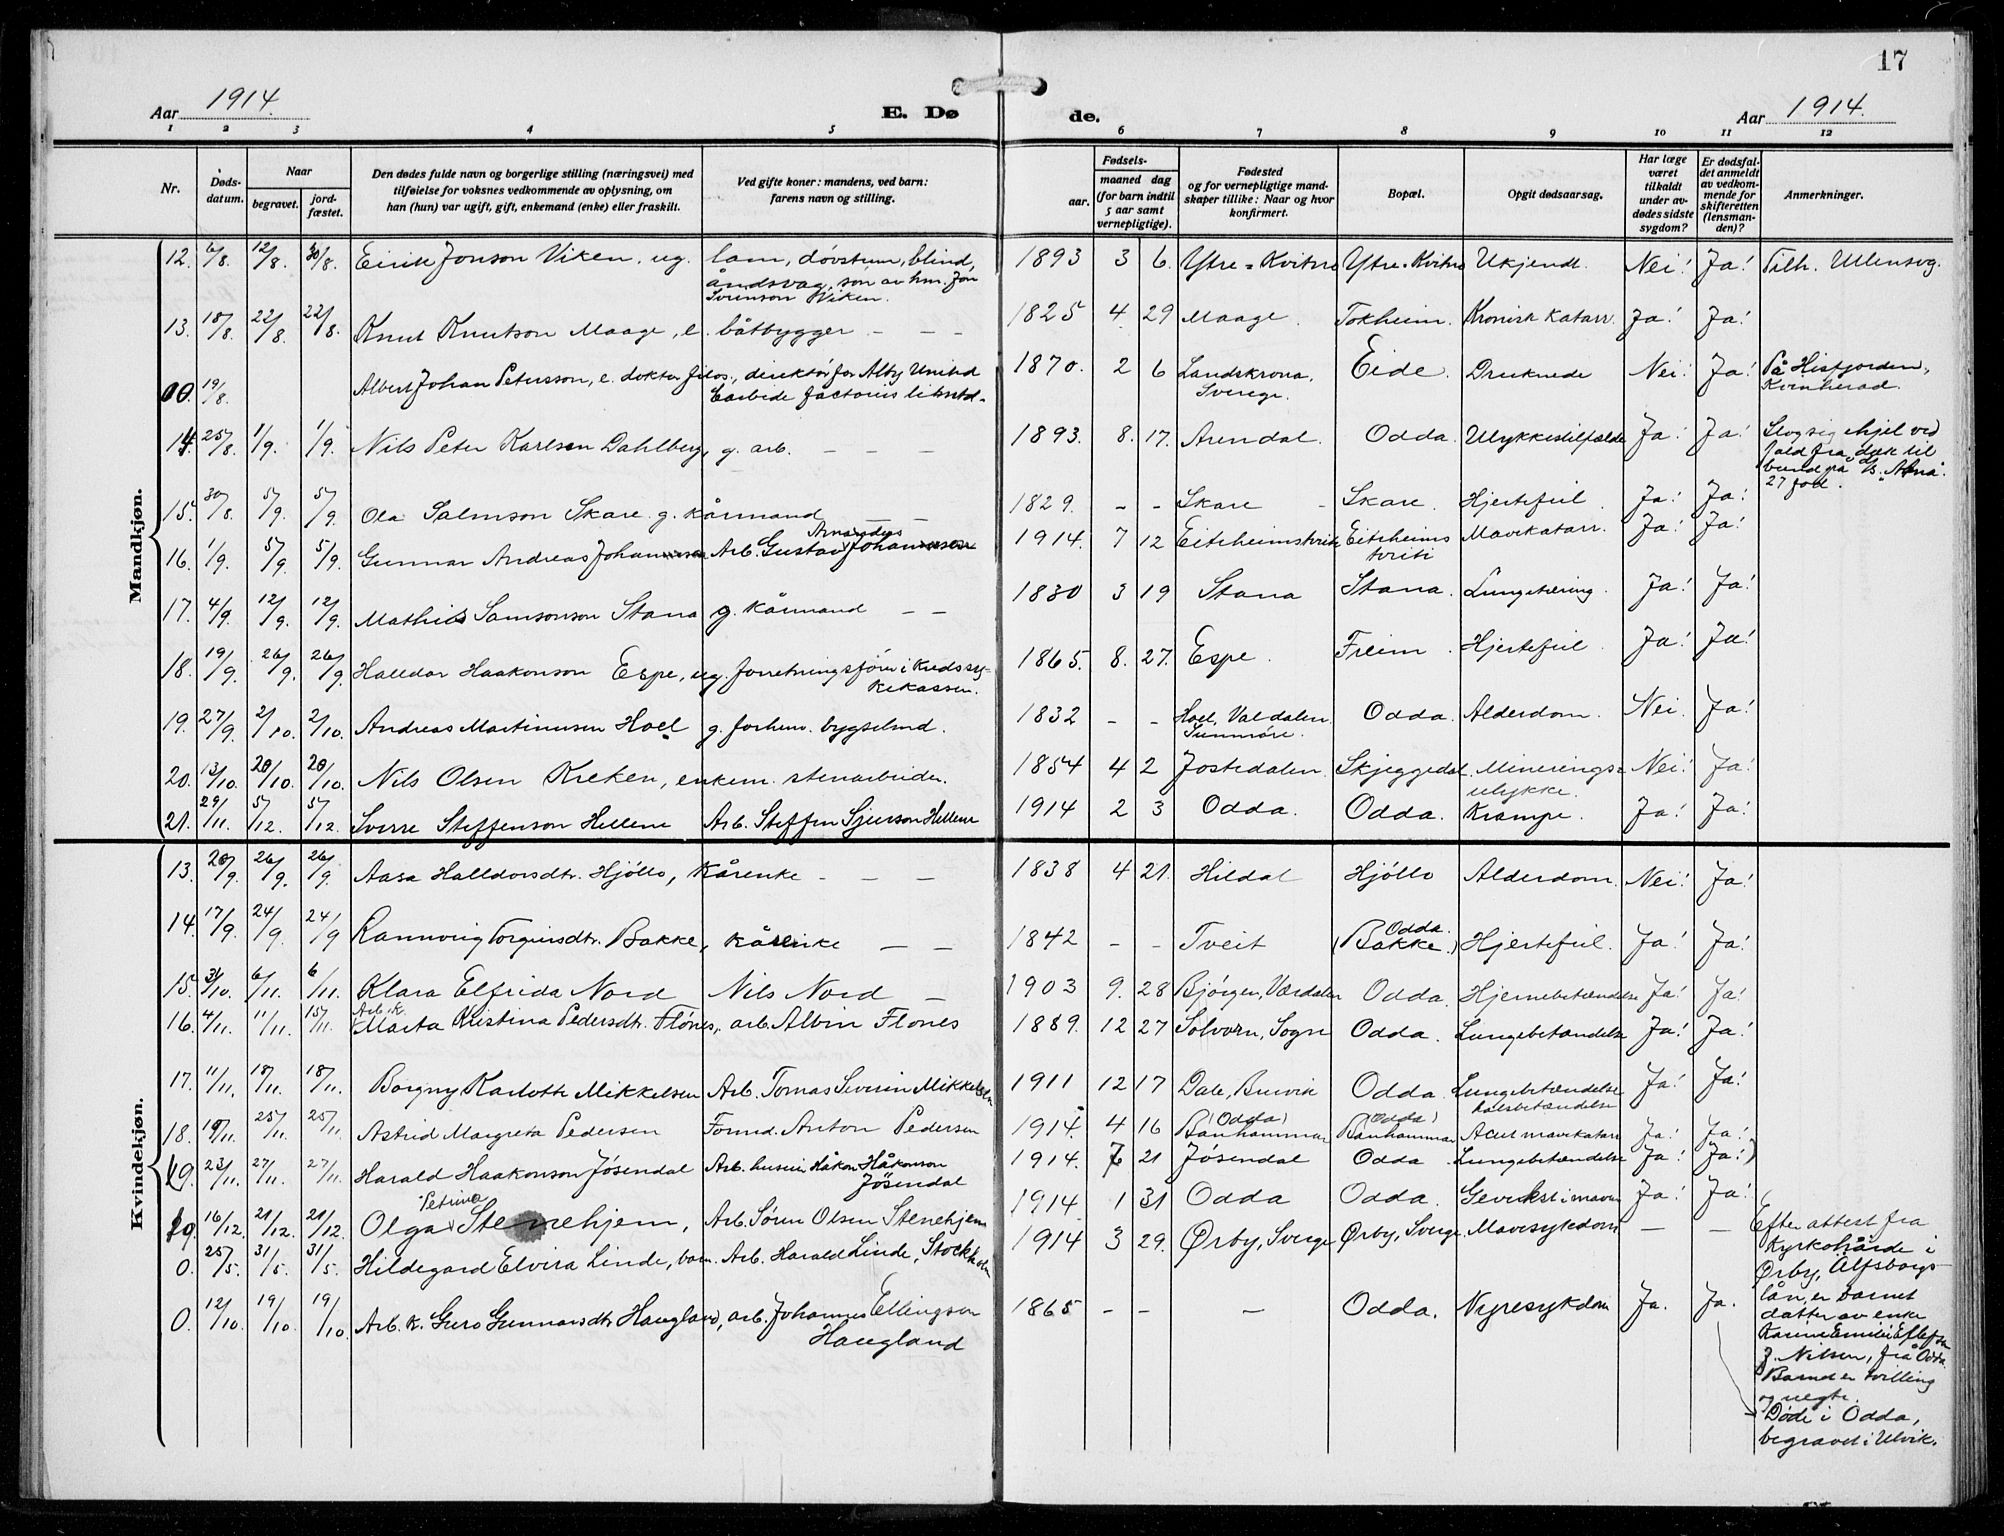 17
Aar 1914.
E. Dø
de.
Aar 1914.
1 2 3 4 5 6 7 8 9 10 11 12
Nr.
Døds-
datum.
Naar
begravet.
jord-
fæstet.
Den dødes fulde navn og borgerlige stilling (næringsvei) med
tilføielse for voksnes vedkommende av oplysning, om
han (hun) var ugift, gift, enkemand (enke) eller fraskilt.
Ved gifte koner: mandens, ved barn:
farens navn og stilling.
Fødsels-
aar.
maaned dag
(for barn indtil
5 aar samt
vernepligtige).
Fødested
og for vernepligtige mand-
skaper tillike: Naar og hvor
konfirmert.
Bopæl.
Opgit dødsaarsag.
Har læge
været
tilkaldt
under av-
dødes sidste
sygdom?
Er dødsfal-
det anmeldt
av vedkom-
mende for
skifteretten
(lensman-
den)?
Anmerkninger.
Mandkjøn.
12. 6/8. 12/8. 30/8. Eirik Jonson Viken. ug. lam, døvstum, blind, 1893 3 6. Ytre-Kvitno Ytre-Kvitno Ukjendt. Nei! Ja! Tilh. Ullensvg.
åndsvag, søn av hm. Jon
Svenson Viken.
13. 18/8. 22/8. 22/8. Knut Knutson Maage, e. båtbygger – – – 1825 4 29 Maage. Tokheim. Kronisk Katarr. Ja! Ja!
00. 19/8. Albert Johan Petersson, e. doktor filos., direktør for Alby United 1870. 2 6 Landskrona, Eide. Druknede Nei! Ja! På Hisfjorden,
Carbide factories limtd. Sverige. Kvinherad.
14. 25/8. 1/9. 1/9. Nils Peter Karlsen Dahlberg, g. arb. – – – 1893. 8. 17. Arendal. Odda. Ulykkestilfælde Ja! Ja! Slog sig ihjel ved
fald fra dæk til
bund på
27 fod.
15. 30/8. 5/9. 5/9. Ola Salmson Skare g. kårmand – – 1829. – – Skare – Skare. Hjertefeil. Ja! Ja!
16. 1/9. 5/9. 5/9. Gunnar Andreas Johannesen Arb. Gustav Johannesen 1914. 7 12 Eitrheimstveit Eitrheims Mavekatarr. Ja! Ja!
tveiti
17. 4/9. 12/9. 12/9. Mathias Samsonson Stana g. kårmand – – 1830 3 19 Stana Stana. Lungetæring. Ja! Ja!
18. 19/9. 26/9. 26/9. Halldor Haakonson Espe, ug. forretningsfører i Kredssy- 1865. 8. 27. Espe. Freim. Hjertefeil Ja! Ja!
kekassen.
19. 27/9. 2/10. 2/10. Andreas Martinusen Hoel g. forhenv. bygselmd. 1832 – – Hoel, Valdalen Odda. Alderdom. Nei. Ja!
Sunmøre.
20. 13/10. 20/10. 20/10. Nils Olsen Kreken, enkem. stenarbeider. 1854 4 2 Jostedalen. Skjeggedal. Minerings- Nei! Ja!
ulykke.
21. 29/11. 5/12. 5/12. Sverre Steffenson Hellene Arb. Steffen Sjurson Hellene 1914 2 3 Odda. Odda. Krampe. Ja! Ja!
Kvindekjøn.
13. 20/9. 26/9. 26/9. Aasa Halldorsdtr. Hjøllo, kårenke – – – 1838 4 21. Hildal Hjøllo Alderdom. Nei! Ja!
14. 17/9. 24/9 24/9 Rannveig Torgeirsdtr. Bakke, kårenke – – 1842 – – Tveit (Bakke.) Odda. Hjertefeil. Ja! Ja!
15. 31/10. 6/11. 6/11. Klara Elfrida Nord Nils Nord – 1903 9. 28 Bjørgen, Værdalen Odda. Hjernebetændelse Ja! Ja!
16. 4/11. 11/11. 15/11. Arb. k. Marta Kristina Pedersdtr. Flones, arb. Albin Flones 1889. 12 27 Solvorn, Sogn Odda. Lungebetændelse Ja! Ja!
17. 11/11. 18/11. 18/11. Borgny Karlotte Mikkelsen Arb. Tomas Severin Mikkelsen 1911 12 17 Dale, Bruvik Odda. Lungebetændelse Ja! Ja!
halsbetændelse
18. 19/11. 25/11 25/11. Astrid Margreta Pedersen Formd. Anton Pedersen 1914. 4 16 (Odda) Banhammar (Odda) Banhammar Acut mavekatarr Ja! Ja!
(19. 23/11. 27/11. 27/11. Harald Haakonson Jøsendal Arb. husein Håkon Håkonson 1914. 7 21 Jøsendal Odda. Lungebetændelse Ja! Ja!)
Jøsendal
19. 16/12. 21/12. 21/12. Olga Petrine Stenehjem, Arb. Søren Olsen Stenehjem 1914 1 31 Odda Odda. Gevekst i maven Ja! Ja!
0. 25/5. 31/5. 31/5. Hildegard Elvira Linde, barn. Arb. Harald Linde, Stockholm 1914 3 29. Ørby, Sverige Ørby, Sverige. Mavesykdom – – Efter attest fra
Kyrkohärde i
Ørby, Älfsborgs-
län, er barnet
datter av enke
Karine Emilie
f. Nilsen, frå Odda.
Barnet er tvilling
og uegte.
0. 12/10. 19/10. 19/10. Arb. k. Guro Gunnarsdtr Haugland, arb. Johannes Ellingsen 1865 – – – Odda. Nyresykdom Ja. Ja.
Haugland
Døde i Odda,
begravet i Ulvik.